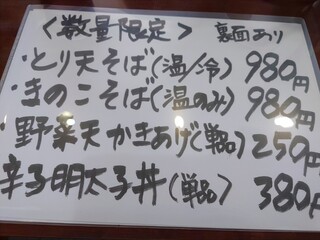 〈数量限定〉 裏面あり
・とり天そば(温/冷) 980円
・きのこそば(温のみ) 980円
・野菜天かきあげ(単品) 250円
辛子明太子丼(単品) 380円